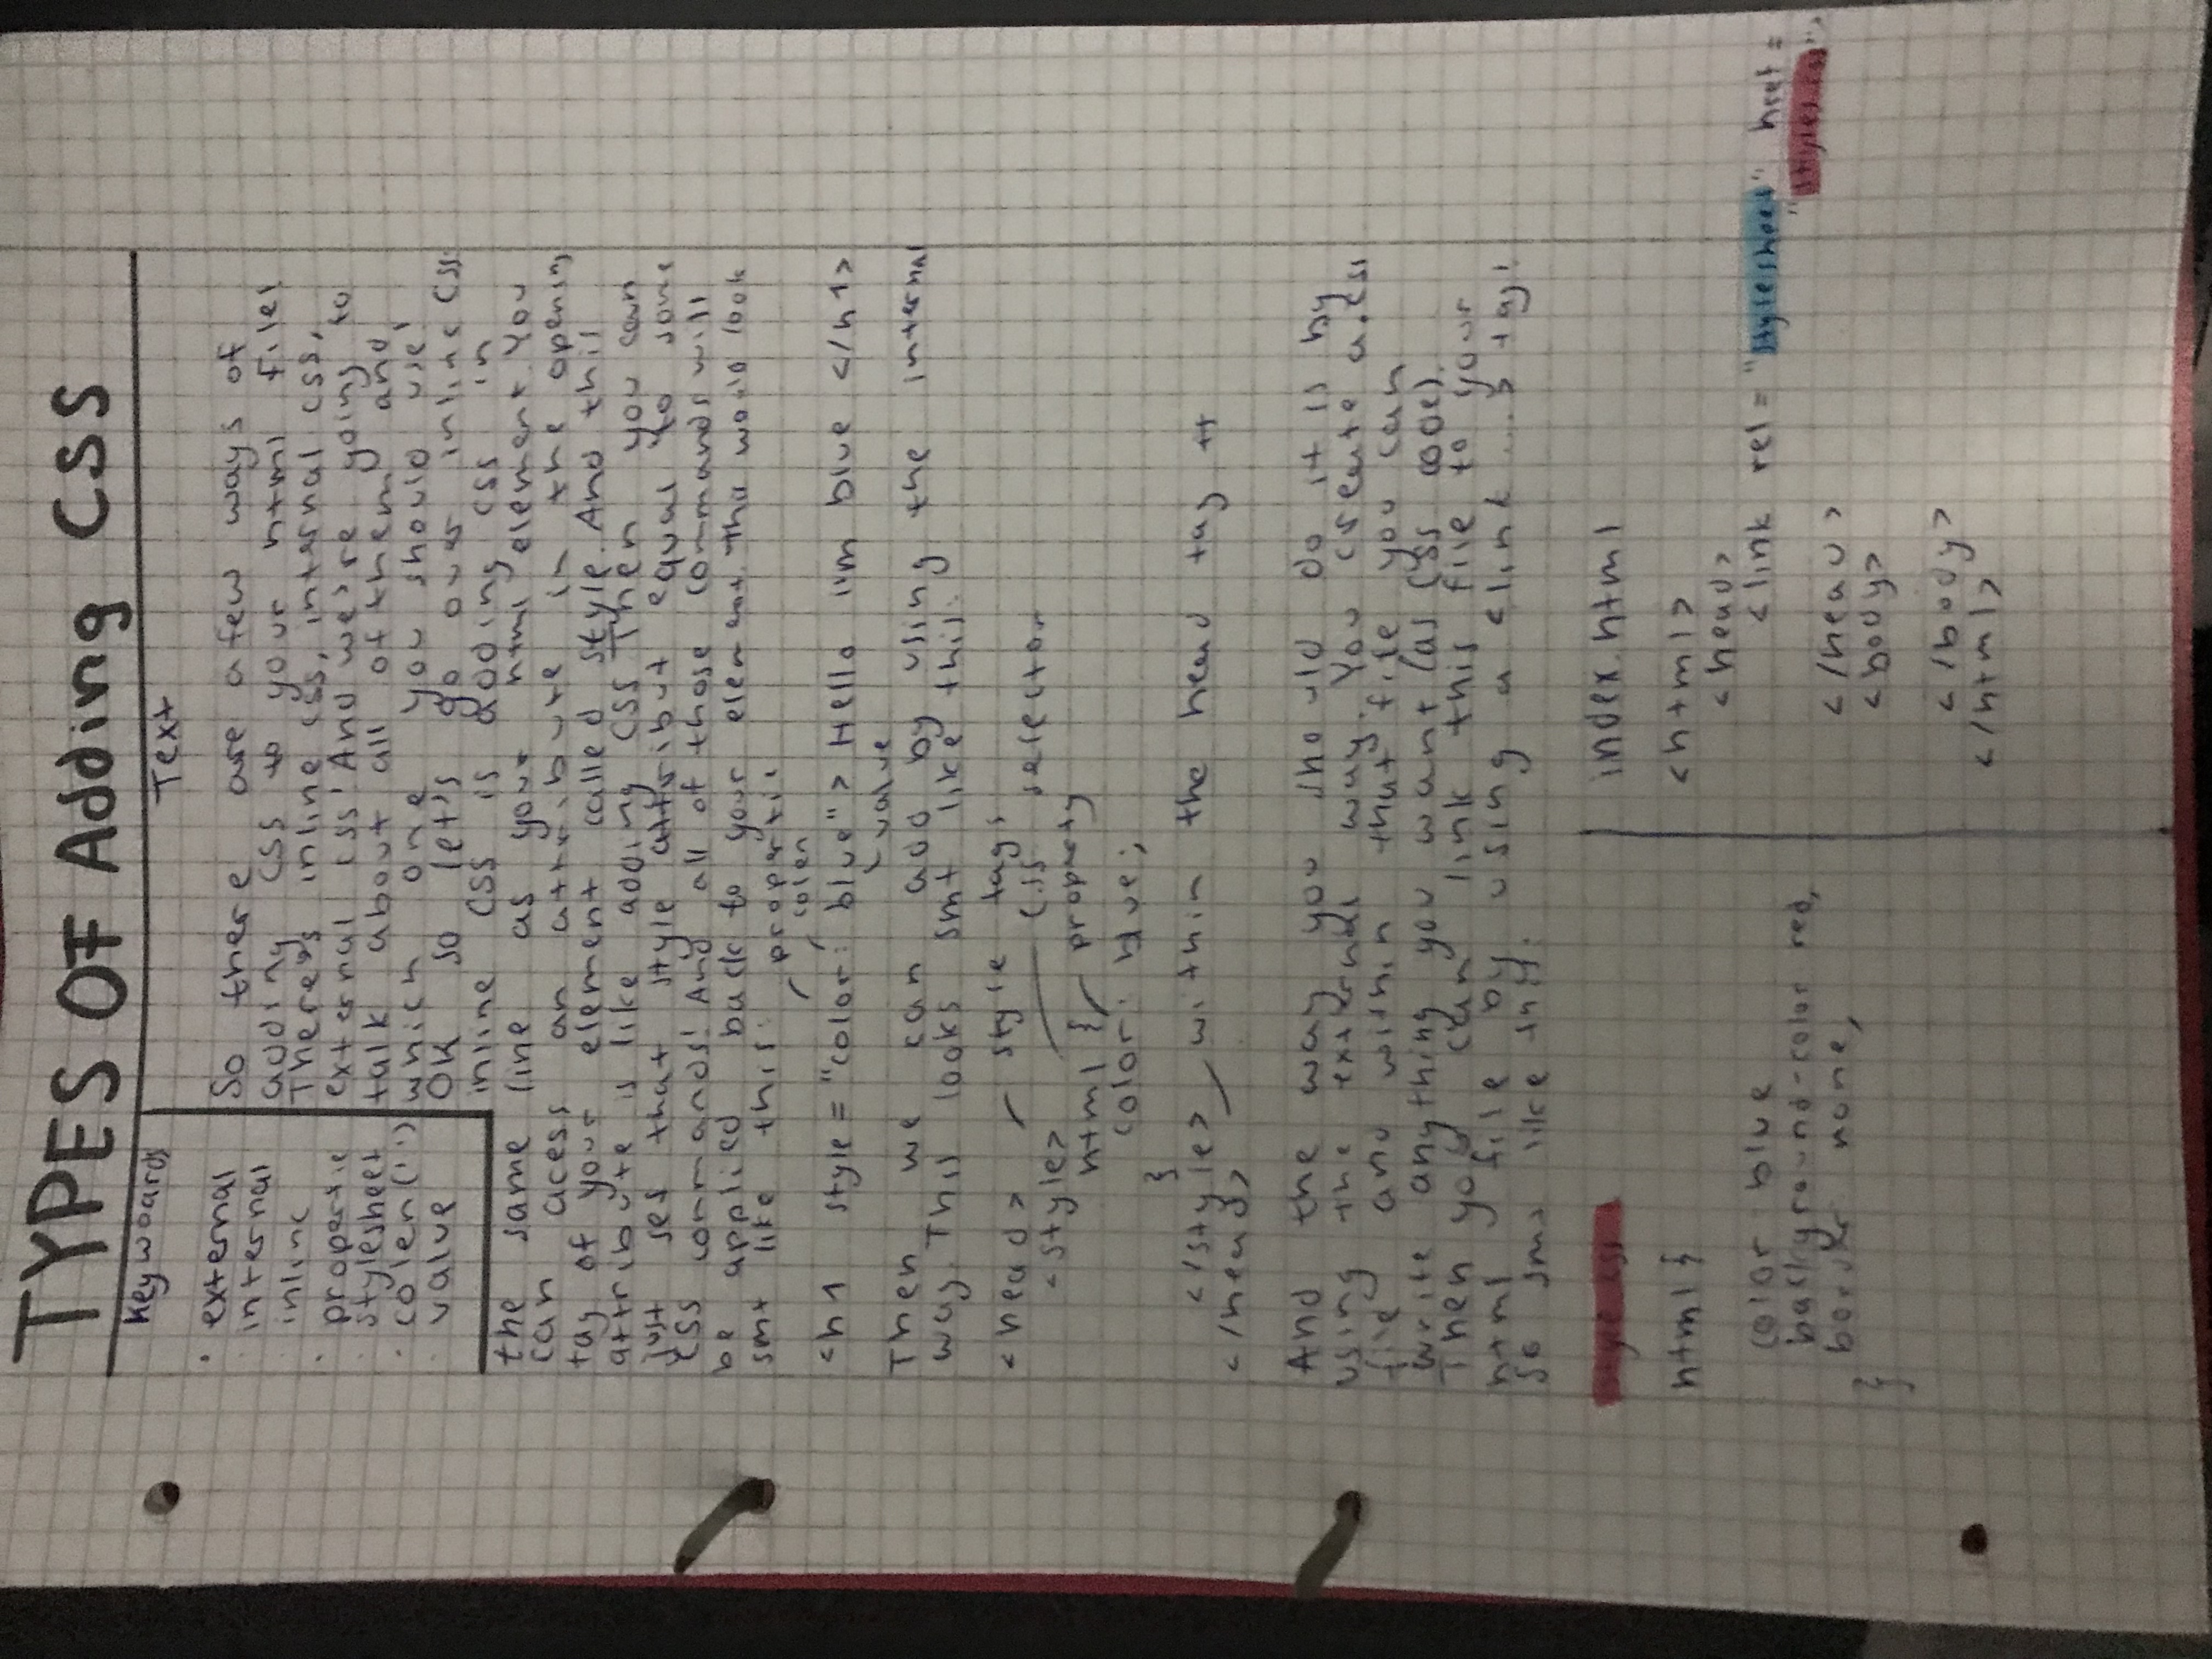 TYPES OF Adding CSS
Keywoards
external
internal
inline
propertie
stylesheet
colen(':')
value
Text
So there are a few ways of
adding CSS to your html file!
There's inline css, internal css,
external css! And we're going to
talk about all of them and
which one you should use!
OK so let's go over inline CSS:
inline CSS is adding css in
the same line as your html element. You
can acess an attribute in the opening
tag of your element called style. And this
attribute is like adding CSS Then you can
just set that style attribut equal to some
CSS commands! And all of those commands will
be applied back to your element. This would look
smt like this:
propertie
colen
<h1 style = "color: blue"> Hello i'm blue </h1>
value
Then we can add by using the internal
way. This looks smt like this:
<head> style tags
<style> css selector
html { property
color: blue;
}
</style> within the head tag ++
</head>
And the way you should do it is by
using the external way. You create a .css
file and within that file you can
write anything you want (as CSS code).
Then you can link this file to your
html file by using a <link ...> tag!
So smt like this:
style.css
html {
color: blue
background-color red,
border none,
}
index.html
<html>
<head>
<link rel = "stylesheet" href =
"styles.css">
</head>
<body>
</body>
</html>